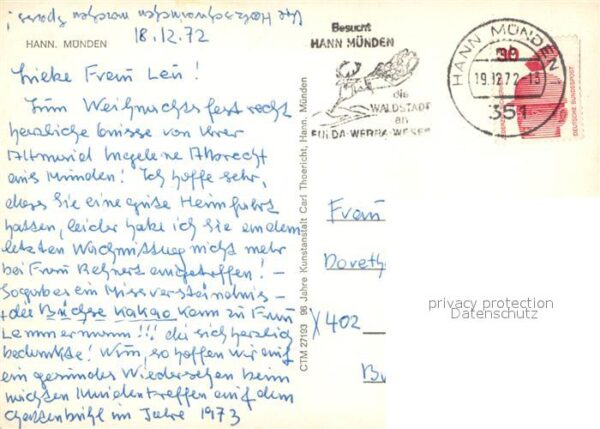 HANN. MÜNDEN
18.12.72
Liebe Frau Leu!
Zum Weihnachtsfest recht
herzliche Grüsse von Ihrer
Ingelene
aus Münden! Ich hoffe sehr,
dass Sie eine gute Heimfahrt
hatten, leider habe ich Sie an dem
letzten Nachmittag nicht mehr
bei Frau angetroffen! –
Sogar ein Missverständnis –
die Büchse Kakao kam zu Frau
Lemmermann!!! die sich herzlich
bedankte! Nun, so hoffen wir auf
ein gesundes Wiedersehen beim
nächsten Mündentreffen auf dem
im Jahre 1973
CTM 27193 98 Jahre Kunstanstalt Carl Thoericht, Hann. Münden
Besucht
HANN MÜNDEN
die
WALDSTADT
an
FULDA-WERRA-WESER
HANN MÜNDEN
19.12.72
351
30
DEUTSCHE BUNDESPOST
Frau
Doroth
X402
privacy protection
Datenschutz